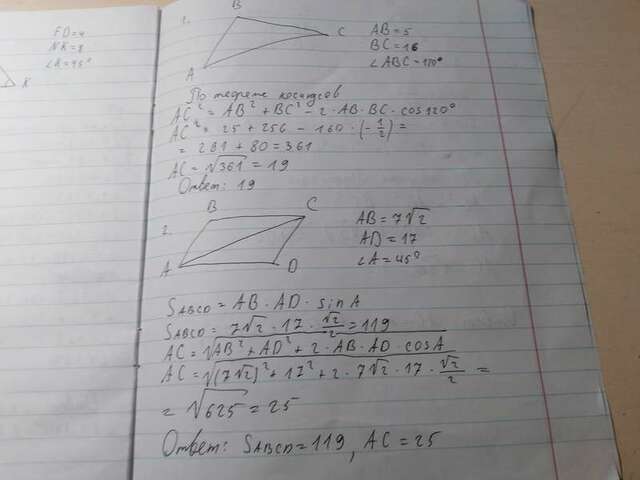 FD=4
NK=8
∠K=45°
K
1.
B
C
A
AB=5
BC=16
∠ABC=120°
По теореме косинусов
AC²=AB²+BC²-2·AB·BC·cos120°
AC²=25+256-160·(-1/2)=
=281+80=361
AC=√361=19
Ответ: 19
2.
B
C
A
D
AB=7√2
AD=17
∠A=45°
SABCD=AB·AD·sinA
SABCD=7√2·17·√2/2=119
AC=√AB²+AD²+2·AB·AD·cosA
AC=√(7√2)²+17²+2·7√2·17·√2/2=
=√625=25
Ответ: SABCD=119, AC=25